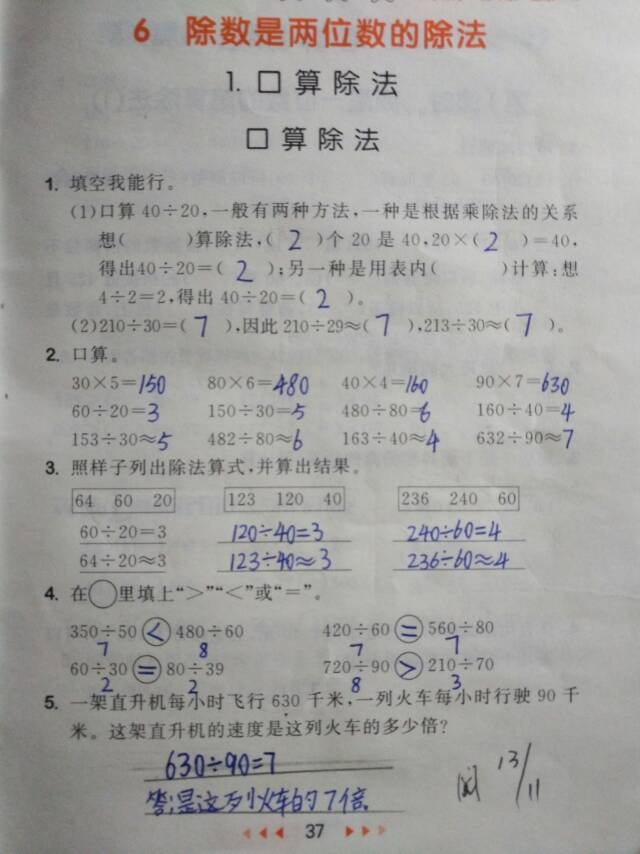 6 除数是两位数的除法
1. 口算除法
口算除法
1. 填空我能行。
(1)口算40÷20,一般有两种方法,一种是根据乘除法的关系
想(　　)算除法,( 2 )个20是40,20×( 2 )=40,
得出40÷20=( 2 );另一种是用表内(　　)计算:想
4÷2=2,得出40÷20=( 2 )。
(2)210÷30=( 7 ),因此210÷29≈( 7 ),213÷30≈( 7 )。
2. 口算。
30×5=150 80×6=480 40×4=160 90×7=630
60÷20=3 150÷30=5 480÷80=6 160÷40=4
153÷30≈5 482÷80≈6 163÷40≈4 632÷90≈7
3. 照样子列出除法算式,并算出结果。
64 60 20 123 120 40 236 240 60
60÷20=3 120÷40=3 240÷60=4
64÷20≈3 123÷40≈3 236÷60≈4
4. 在○里填上“>”“<”或“=”。
350÷50 < 480÷60 420÷60 = 560÷80
7 8 7 7
60÷30 = 80÷39 720÷90 > 210÷70
2 2 8 3
5. 一架直升机每小时飞行630千米,一列火车每小时行驶90千
米。这架直升机的速度是这列火车的多少倍?
630÷90=7
答:是这列火车的7倍.
阅 13/11
37